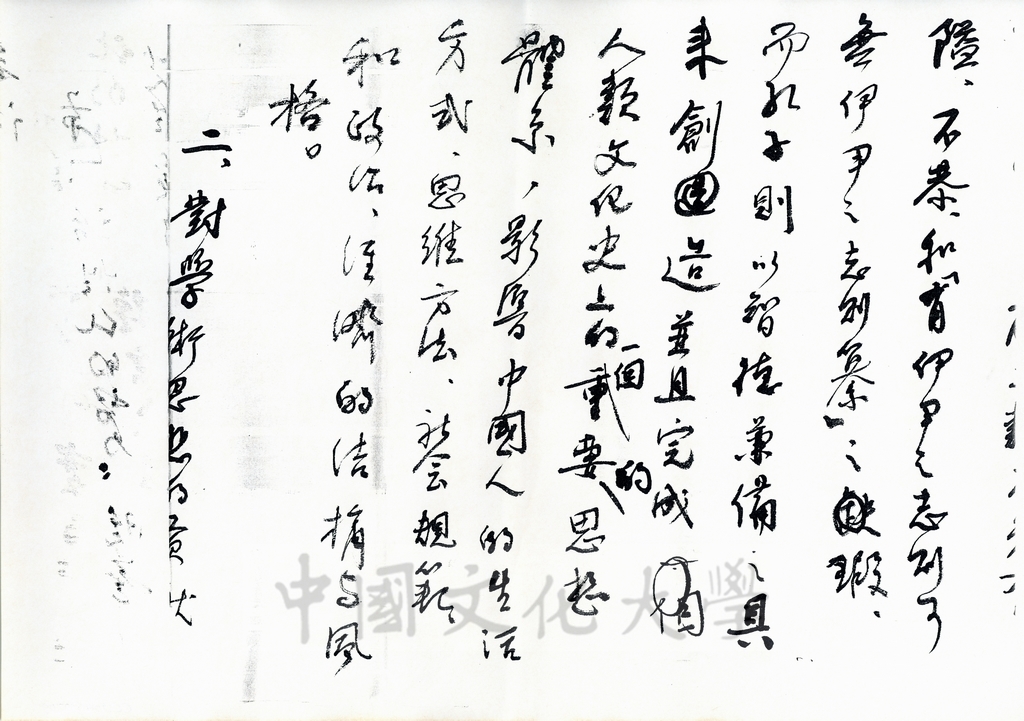 隘、不恭、和「有伊尹之志則可
無伊尹之志則篡」之缺瑕、
而孔子則以智德兼備之具
來創造並且完成
人類文化史上的一個重要的思想
體系，影響中國人的生活
方式、思維方法、社會規範
和政治、經濟的結構與風
格。
二、對學術思想的貢献
中國文化大學